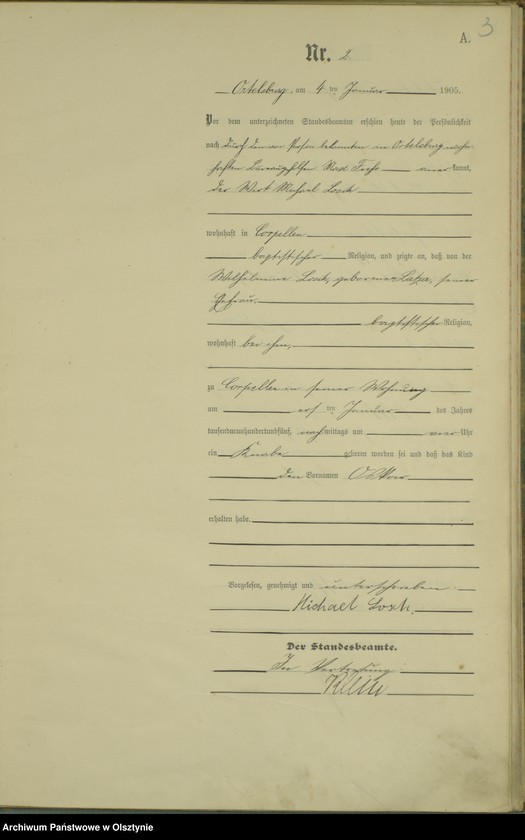 A. 3
Nr. 2.
Ortelsburg, am 4 ten Januar 1905.
Vor dem unterzeichneten Standesbeamten erschien heute der Persönlichkeit
nach durch den von Person bekannten in Ortelsburg wohn-
haften Bureaugehilfen Max anerkannt,
der Wirt Michael Losch
wohnhaft in Corpellen
baptistischer Religion, und zeigte an, daß von der
Wilhelmine Losch, geborenen seiner
Ehefrau,
baptistischer Religion,
wohnhaft bei ihm,
zu Corpellen in seiner Wohnung
am ersten Januar des Jahres
tausendneunhundertundfünf, nachmittags um vier Uhr
ein Knabe geboren worden sei und daß das Kind
den Vornamen Oskar
erhalten habe.
Vorgelesen, genehmigt und unterschrieben
Michael Losch.
Der Standesbeamte.
In Vertretung
Klein
Archiwum Państwowe w Olsztynie